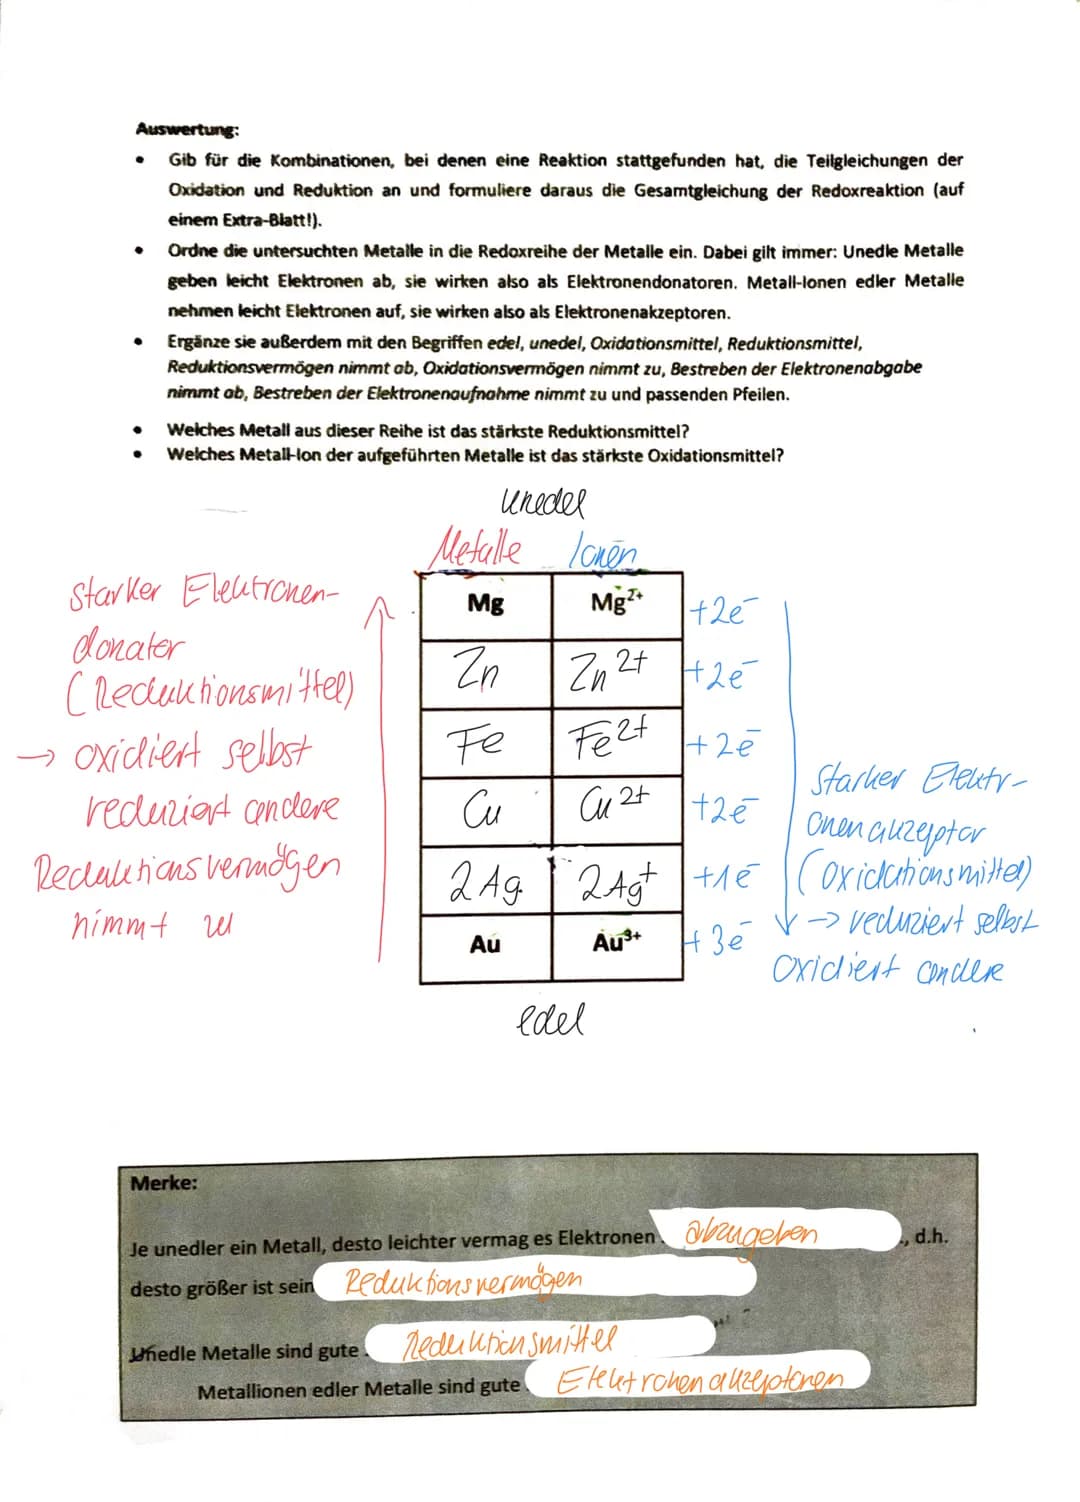 Auswertung:
• Gib für die Kombinationen, bei denen eine Reaktion stattgefunden hat, die Teilgleichungen der
Oxidation und Reduktion an und formuliere daraus die Gesamtgleichung der Redoxreaktion (auf
einem Extra-Blatt!).
• Ordne die untersuchten Metalle in die Redoxreihe der Metalle ein. Dabei gilt immer: Unedle Metalle
geben leicht Elektronen ab, sie wirken also als Elektronendonatoren. Metall-Ionen edler Metalle
nehmen leicht Elektronen auf, sie wirken also als Elektronenakzeptoren.
• Ergänze sie außerdem mit den Begriffen edel, unedel, Oxidationsmittel, Reduktionsmittel,
Reduktionsvermögen nimmt ab, Oxidationsvermögen nimmt zu, Bestreben der Elektronenabgabe
nimmt ab, Bestreben der Elektronenaufnahme nimmt zu und passenden Pfeilen.
• Welches Metall aus dieser Reihe ist das stärkste Reduktionsmittel?
• Welches Metall-Ion der aufgeführten Metalle ist das stärkste Oxidationsmittel?
unedel
Metalle Ionen
Mg Mg²⁺ +2e⁻
Zn Zn²⁺ +2e⁻
Fe Fe²⁺ +2e⁻
Cu Cu²⁺ +2e⁻
2Ag 2Ag⁺ +1e⁻
Au Au³⁺ +3e⁻
edel
Starker Elektronen-
donater
(Reduktionsmittel)
→ oxidiert selbst
reduziert andere
Reduktionsvermögen
nimmt zu
Starker Elektr-
onenakzeptor
(Oxidationsmittel)
→ reduziert selbst
Oxidiert andere
Merke:
Je unedler ein Metall, desto leichter vermag es Elektronen abzugeben, d.h.
desto größer ist sein Reduktionsvermögen
Unedle Metalle sind gute Reduktionsmittel
Metallionen edler Metalle sind gute Elektronenakzeptoren